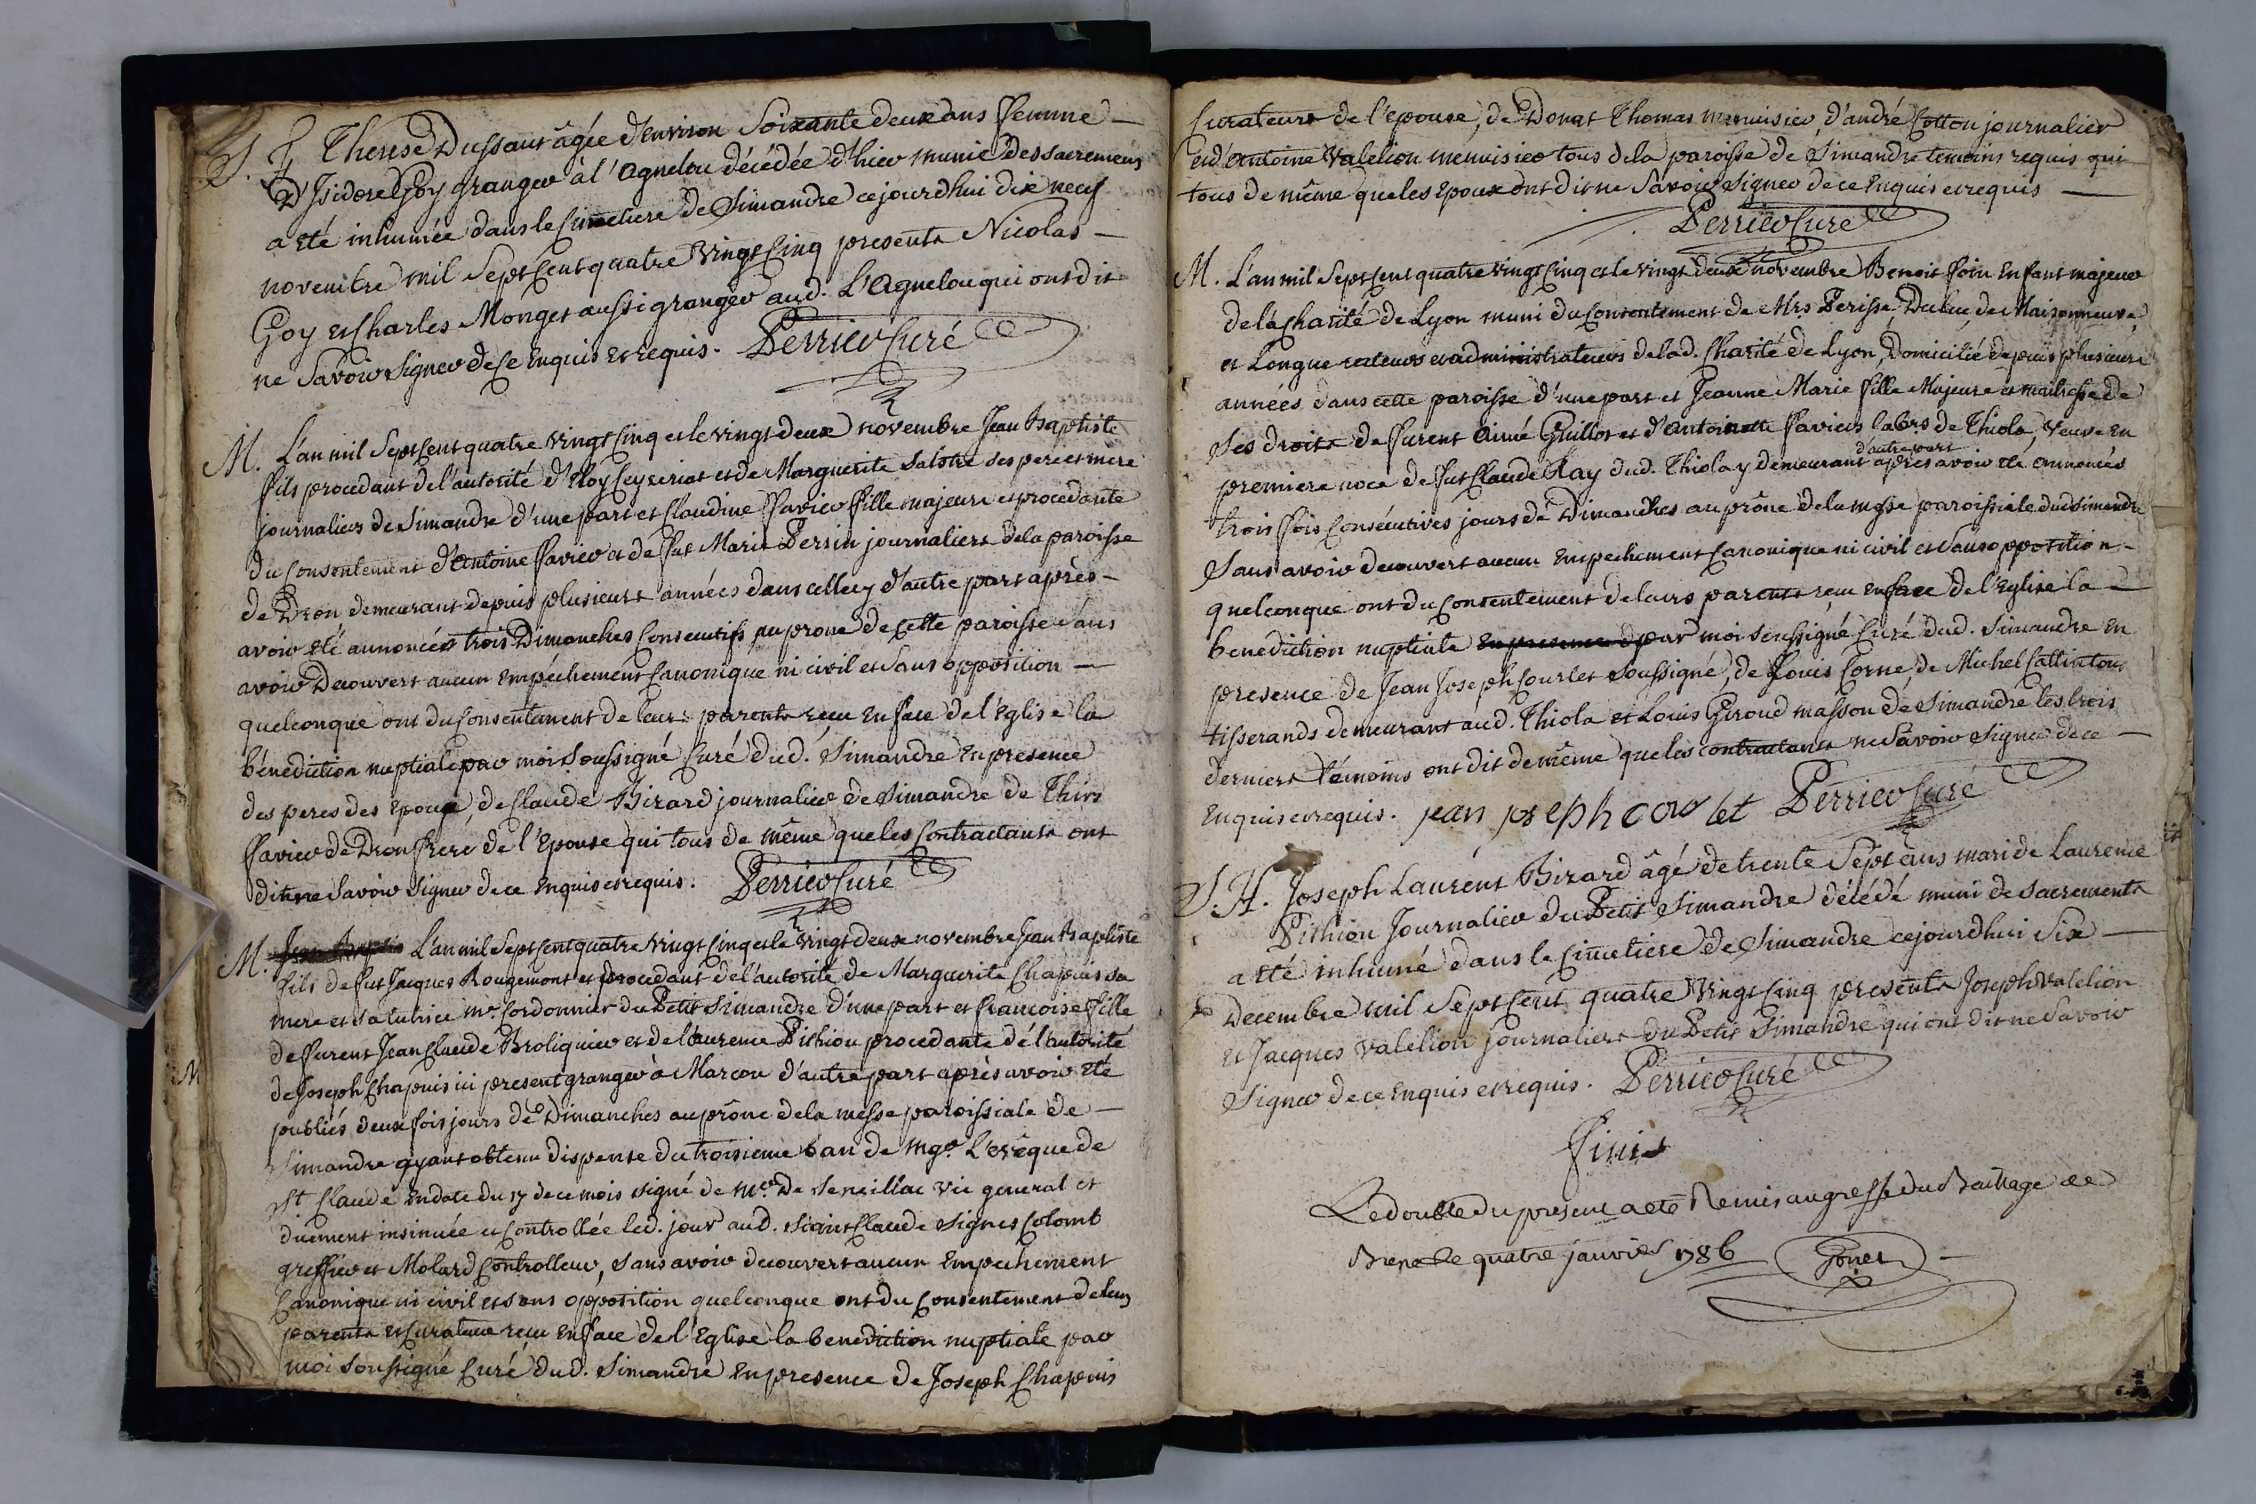 S. f. Therese Dussaut âgée d'environ soixante deux ans femme
d'Isidore Goy granger à l'Agnelou décédée d'hier munie des sacremens
a été inhumée dans le cimetiere de Simandre cejourdhui dix neuf
novembre mil sept cent quatre vingt cinq presents Nicolas
Goy et Charles Monget aussi granger aud. L'Agnelou qui ont dit
ne savoir signer de ce enquis et requis. Perrier Curé
M. L'an mil sept cent quatre vingt cinq et le vingt deux novembre Jean Baptiste
fils procedant de l'autorité d'Eloy Ceyzeriat et de Marguerite Salotre ses pere et mere
journaliers de Simandre d'une part et Claudine Favier fille majeure et procedante
du consentement d'Antoine Favier et de fut Marie Persin journaliers de la paroisse
de Dron demeurant depuis plusieurs années dans celle cy d'autre part après
avoir été annoncés trois Dimanches consecutifs au prone de cette paroisse sans
avoir decouvert aucun empêchement canonique ni civil et sans opposition
quelconque ont du consentement de leurs parents reçu en face de l'église la
bénédiction nuptiale par moi soussigné curé dud. Simandre en presence
des peres des epoux, de Claude Birard journalier de Simandre de Thivs
Favier de Dron frere de l'epouse qui tous de même que les contractants ont
dit ne savoir signer de ce enquis et requis. Perrier Curé
M. Jean Baptis L'an mil sept cent quatre vingt cinq et le vingt deux novembre Jean Baptiste
fils de fut Jacques Rougemont et procedant de l'autorité de Marguerite Chapuis sa
mere et sa tutrice me. cordonnier du Petit Simandre d'une part et Francoise fille
de furent Jean Claude Broliquier et de Laurence Pithiou procedante de l'autorité
de Joseph Chapuis ici present granger à Marcou d'autre part après avoir été
publiés deux fois jours de Dimanches au prône de la messe paroissiale de
Simandre ayant obtenu dispense du troisieme ban de Mgr. L'evêque de
St. Claude en date du 17 de ce mois signé de Mr. De Seneillac vic general et
duement insinuée et controllée led. jour aud. Saint Claude signés Colomb
greffier et Molard controlleur, sans avoir decouvert aucun empechement
canonique ni civil et sans opposition quelconque ont du consentement de leurs
parents et curateur reçu en face de l'Eglise la benediction nuptiale par
moi soussigné curé dud. Simandre en presence de Joseph Chapuis
curateur de l'epouse, de Donat Thomas menuisier, d'andré Cotton journalier
et d'Antoine Valelion menuisier tous de la paroisse de Simandre temoins requis qui
tous de même que les epoux ont dit ne savoir signer de ce enquis et requis
Perrier Curé
M. L'an mil sept cent quatre vingt cinq et le vingt deux novembre Benoit foin enfant majeur
de la Charité de Lyon muni du consentement de Mrs Perisse, Duluc, de Maisonneuve,
et Longue recteurs et administrateurs de lad. Charité de Lyon, domicilié depuis plusieurs
années dans cette paroisse d'une part et Jeanne Marie fille Majeure et maitresse de
ses droits de furent Aimé Guillot et d'Antoinette Favier labrs. de Thiola, veuve en
d'autre part
premiere noce de fut Claude Ray dud. Thiola y demeurant après avoir été annoncés
trois fois consécutives jours de Dimanches au prône de la messe paroissiale dud Simandre
sans avoir decouvert aucun empechement canonique ni civil et sans opposition
quelconque ont du consentement de leurs parents reçu en face de l'Eglise la
benediction nuptiale en presence d par moi soussigné curé dud. Simandre en
presence de Jean Joseph Courlet soussigné, de Louis Corne, de Michel Callinton
tisserands demeurant aud. Thiola et Louis Giroud masson de Simandre les trois
derniers témoins ont dit de même que les contractants ne savoir signer de ce
enquis et requis. jean joseph cour let Perrier Curé
S. H. Joseph Laurent Birard âgé de trente sept ans mari de Laurence
Pithiou journalier du Petit Simandre décédé muni de sacrements
a été inhumé dans le cimetiere de Simandre cejourdhui six
decembre mil sept cent quatre vingt cinq presents Joseph Valelion
et Jacques Valelion journaliers du Petit Simandre qui ont dit ne savoir
signer de ce enquis et requis. Perrier Curé
finis
Le double du present a eté Remis au greffe du Baillage de
Bresse le quatre janvier 1786